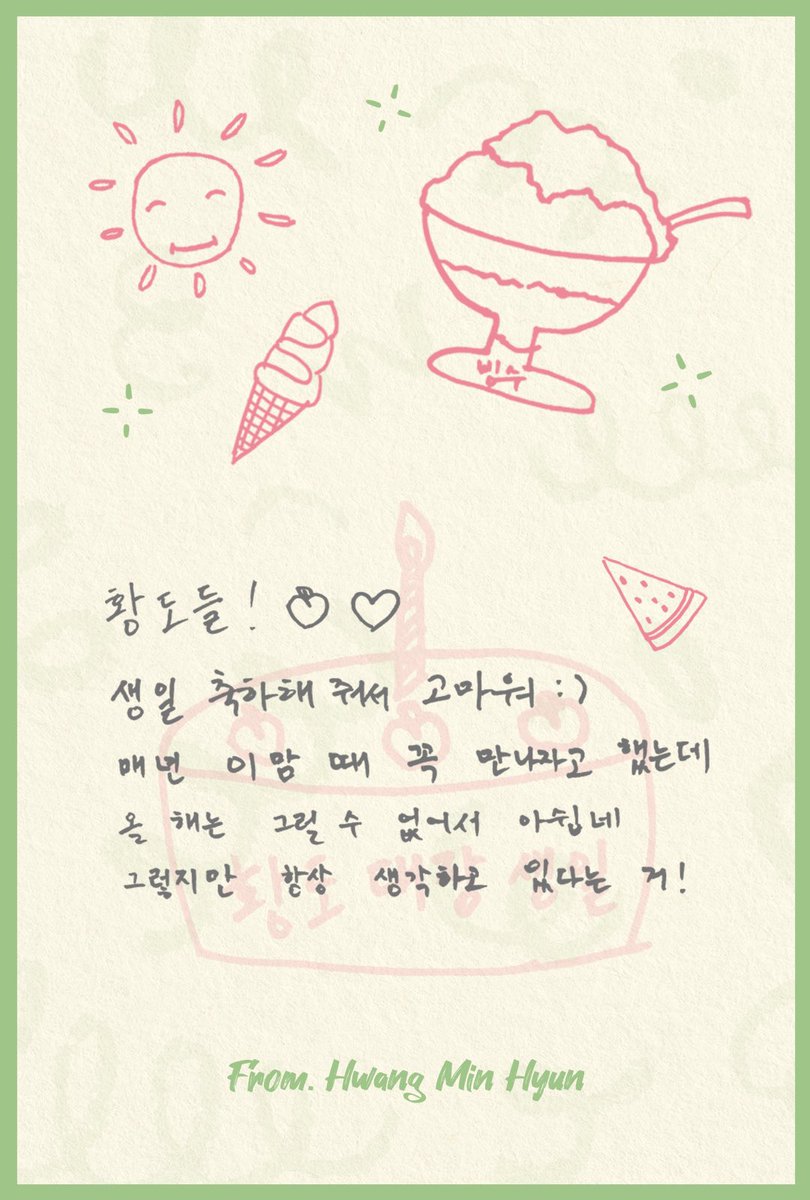 빙수
황도들! 
생일 축하해 줘서 고마워 :)
매년 이맘 때 꼭 만나자고 했는데
올 해는 그럴 수 없어서 아쉽네
그렇지만 항상 생각하고 있다는 거!
황도 대장 생일
From. Hwang Min Hyun